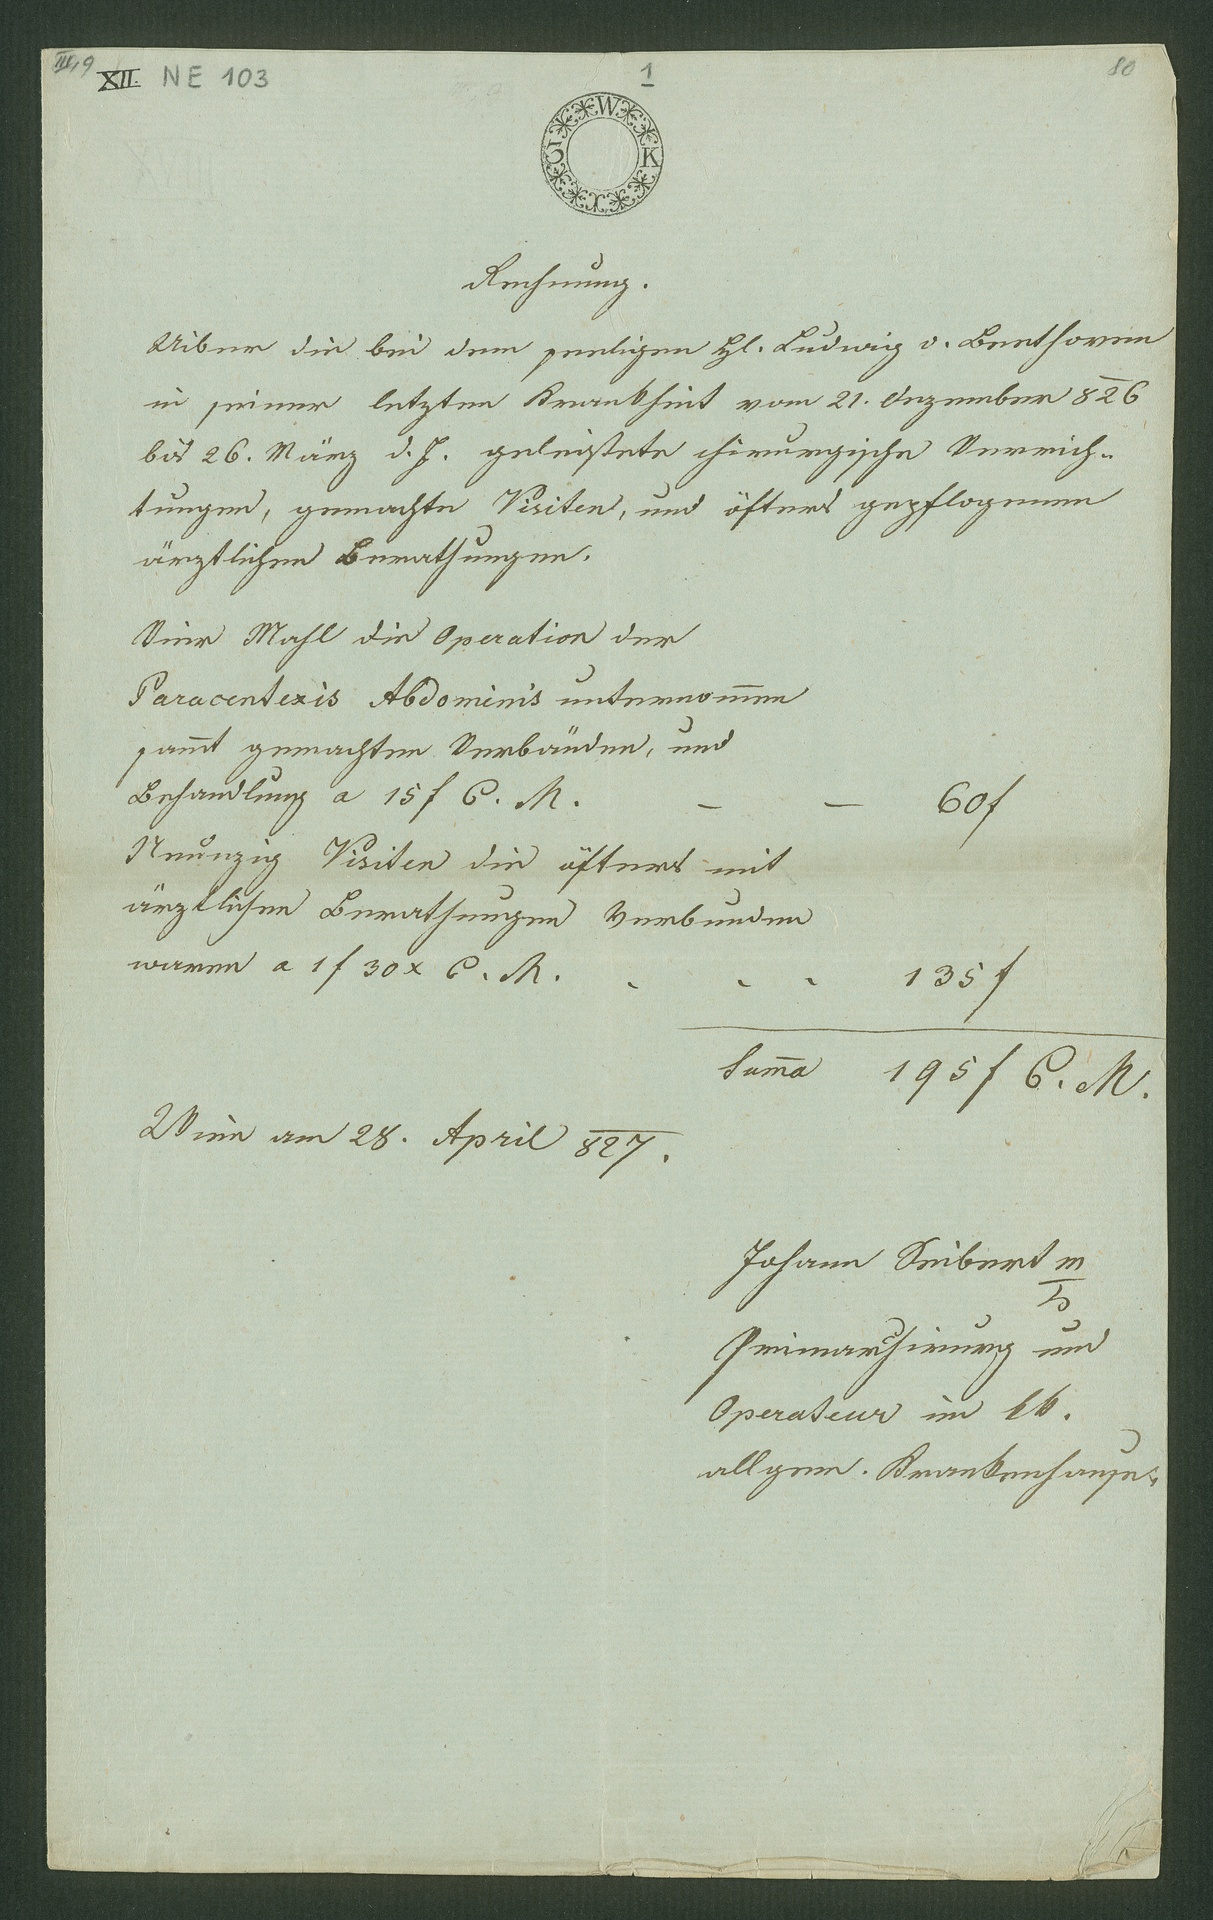 III,9 XII. NE 103 1 80
W K X 3
Rechnung.
Uiber die bei dem seeligen Hl. Ludwig v. Beethoven
in seiner letzten Krankheit vom 21. Dezember 826
bis 26. März d. J. geleistete chirurgische Verrich-
tungen, gemachte Visiten, und öfters gepflogenen
ärztlichen Berathungen.
Vier Mahl die Operation der
Paracentexis Abdominis unternom̅en
sam̅t gemachten Verbänden, und
Behandlung a 15 f C. M. — — 60 f
Neunzig Visiten die öfters mit
ärztlichen Berathungen verbunden
waren a 1 f 30 x C. M. - - - 135 f
Sum̅a 195 f C. M.
Wien am 28. April 827.
Johann Seibert m/p
Primarchirurg und
Operateur im kk.
allgem. Krankenhause.